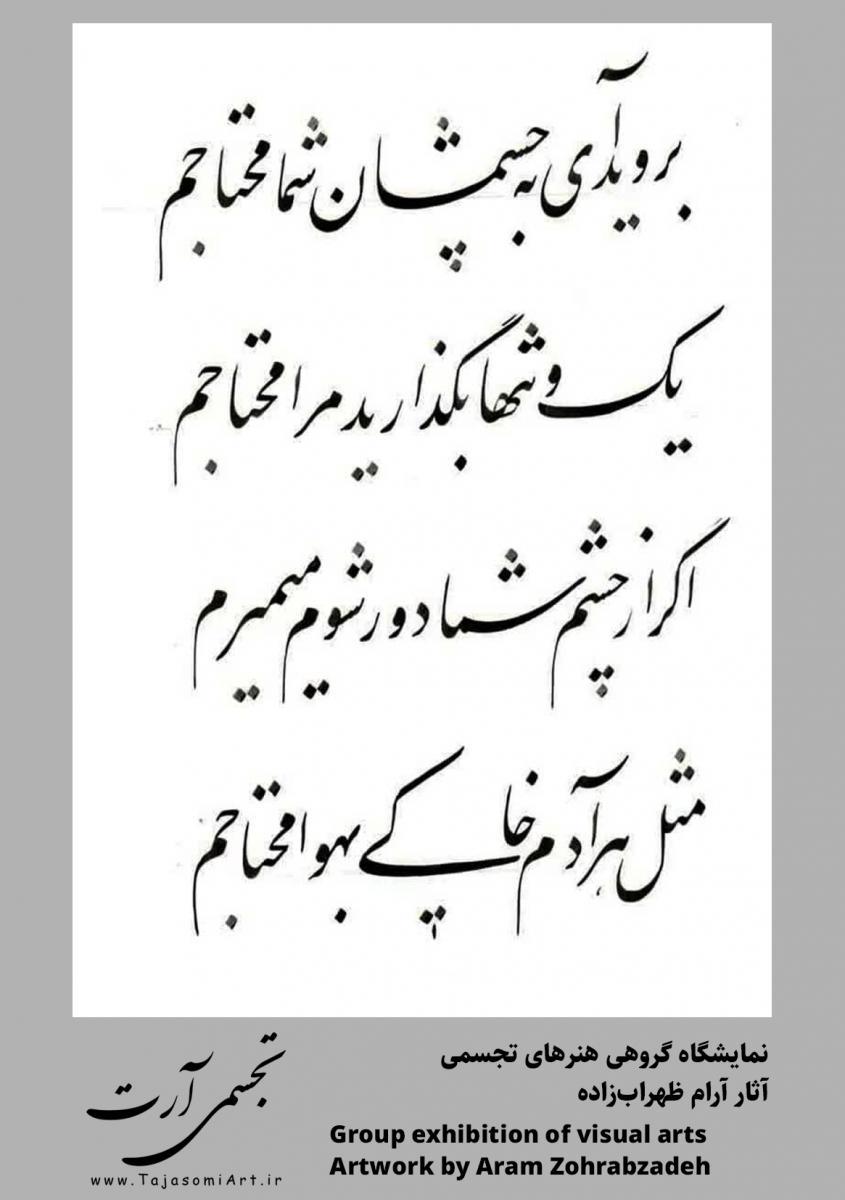 بروید آی به چشمان شما محتاجم
یک و تنها بگذارید مرا محتاجم
اگر از چشم شما دور شوم میمیرم
مثل هر آدم خاکی بهوا محتاجم
نمایشگاه گروهی هنرهای تجسمی
آثار آرام ظهراب‌زاده
Group exhibition of visual arts
Artwork by Aram Zohrabzadeh
تجسمی آرت
www.TajasomiArt.ir